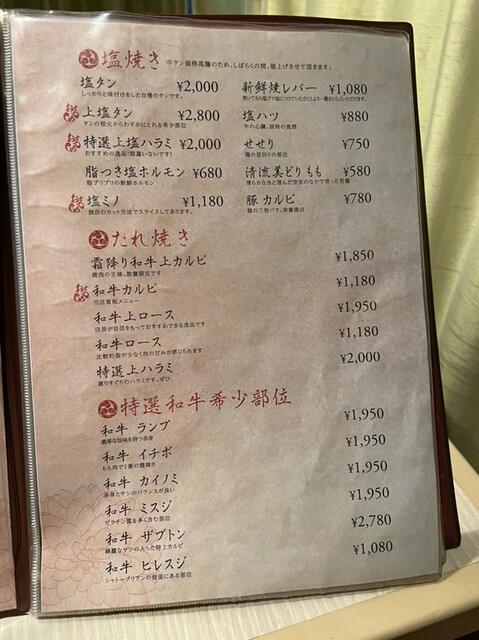 塩焼き 牛タン価格高騰のため、しばらくの間、値上げさせて頂きます。
塩タン ¥2,000
しっかりと味付けをした自慢のタンです。
上塩タン ¥2,800
タンの根元からわずかにとれる希少部位
特選上塩ハラミ ¥2,000
おすすめの逸品!間違いない!です
脂つき塩ホルモン ¥680
脂プリプリの新鮮ホルモン
塩ミノ ¥1,180
独自のカット方法でスライスしてあります。
新鮮焼レバー ¥1,080
塩ハツ ¥880
牛の心臓。独特の食感
せせり ¥750
鶏の首回りの部位
清流美どり もも ¥580
清らかな水と澄んだ空気のなかで育った若鶏
豚 カルビ ¥780
豚の三枚バラ。栄養満点
たれ焼き
霜降り和牛上カルビ ¥1,850
焼肉の王様。数量限定です
和牛カルビ ¥1,180
当店看板メニュー
和牛上ロース ¥1,950
店長が自信をもっておすすめできる逸品です
和牛ロース ¥1,180
比較的脂が少なく肉の甘みが感じられます
特選上ハラミ ¥2,000
選りすぐりのハラミです。ぜひ
特選和牛希少部位
和牛 ランプ ¥1,950
濃厚な旨味を持つ赤身
和牛 イチボ ¥1,950
もも肉で1番の霜降り
和牛 カイノミ ¥1,950
赤身とサシのバランスが良い
和牛 ミスジ ¥1,950
ゼラチン質を多く含む部位
和牛 ザブトン ¥2,780
綺麗なサシの入った特上カルビ
和牛 ヒレスジ ¥1,080
シャトーブリアンの側面にある部位